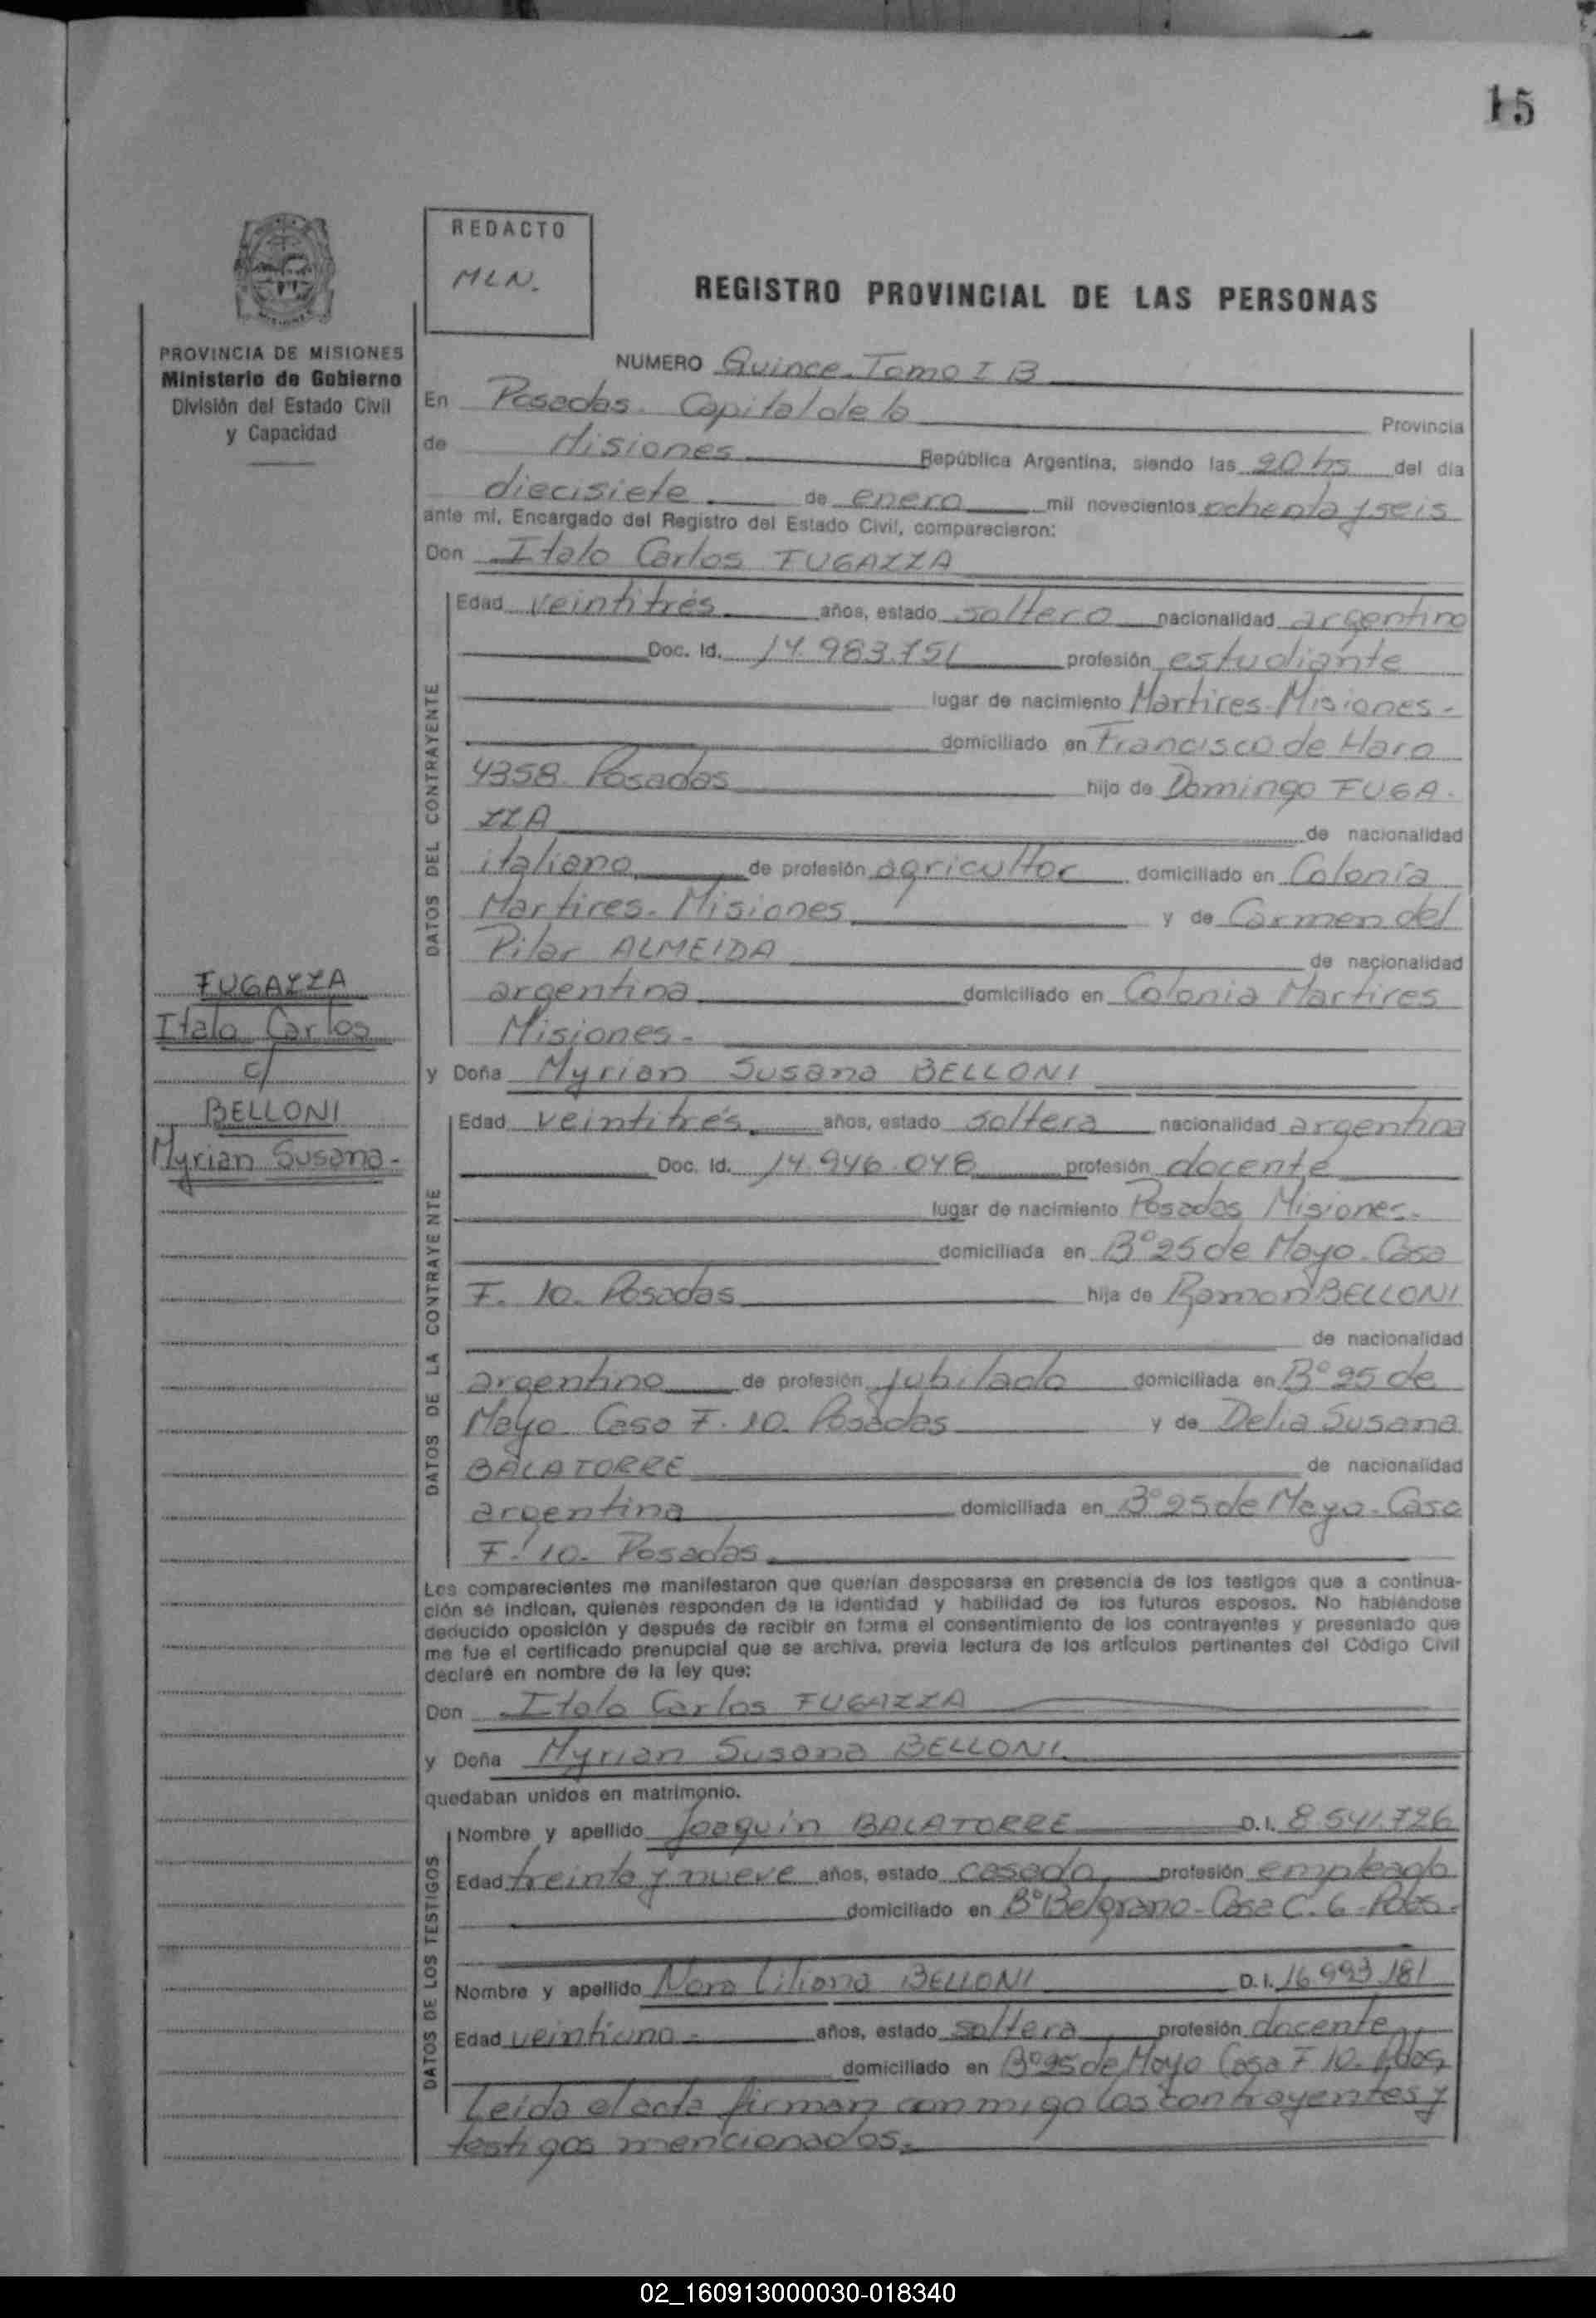 15
REDACTO
MLN.
REGISTRO PROVINCIAL DE LAS PERSONAS
PROVINCIA DE MISIONES
Ministerio de Gobierno
División del Estado Civil
y Capacidad
NUMERO Quince. Tomo I B
En Posadas. Capital de la Provincia
de Misiones República Argentina, siendo las 20 hs del día
diecisiete de enero mil novecientos ochenta y seis
ante mí, Encargado del Registro del Estado Civil, comparecieron:
Don Italo Carlos FUGAZZA
DATOS DEL CONTRAYENTE
Edad veintitrés años, estado soltero nacionalidad argentino
Doc. Id. 14.983.751 profesión estudiante
lugar de nacimiento Martires-Misiones-
domiciliado en Francisco de Haro
4358 Posadas hijo de Domingo FUGA-
ZZA de nacionalidad
italiano de profesión agricultor domiciliado en Colonia
Martires-Misiones y de Carmen del
Pilar ALMEIDA de nacionalidad
argentina domiciliado en Colonia Martires
Misiones-
FUGAZZA
Italo Carlos
c/
BELLONI
Myrian Susana-
y Doña Myrian Susana BELLONI
DATOS DE LA CONTRAYENTE
Edad veintitrés años, estado soltera nacionalidad argentina
Doc. Id. 14.946.048 profesión docente
lugar de nacimiento Posadas Misiones-
domiciliada en B° 25 de Mayo-Casa
F. 10. Posadas hija de Ramon BELLONI
de nacionalidad
argentino de profesión jubilado domiciliada en B° 25 de
Mayo Casa F. 10. Posadas y de Delia Susana
BALATORRE de nacionalidad
argentina domiciliada en B° 25 de Mayo-Casa
F. 10. Posadas
Los comparecientes me manifestaron que querían desposarse en presencia de los testigos que a continua-
ción se indican, quienes responden de la identidad y habilidad de los futuros esposos. No habiéndose
deducido oposición y después de recibir en forma el consentimiento de los contrayentes y presentado que
me fue el certificado prenupcial que se archiva, previa lectura de los artículos pertinentes del Código Civil
declaré en nombre de la ley que:
Don Italo Carlos FUGAZZA
y Doña Myrian Susana BELLONI
quedaban unidos en matrimonio.
DATOS DE LOS TESTIGOS
Nombre y apellido Joaquin BALATORRE D.I. 8.541.726
Edad treinta y nueve años, estado casado profesión empleado
domiciliado en B° Belgrano-Casa C. 6-Pdas-
Nombre y apellido Nora Liliana BELLONI D.I. 16.993.181
Edad veintiuno- años, estado soltera profesión docente
domiciliado en B° 25 de Mayo Casa F 10. Pdas
Leída el acta firman conmigo los contrayentes y
testigos mencionados.
02_160913000030-018340